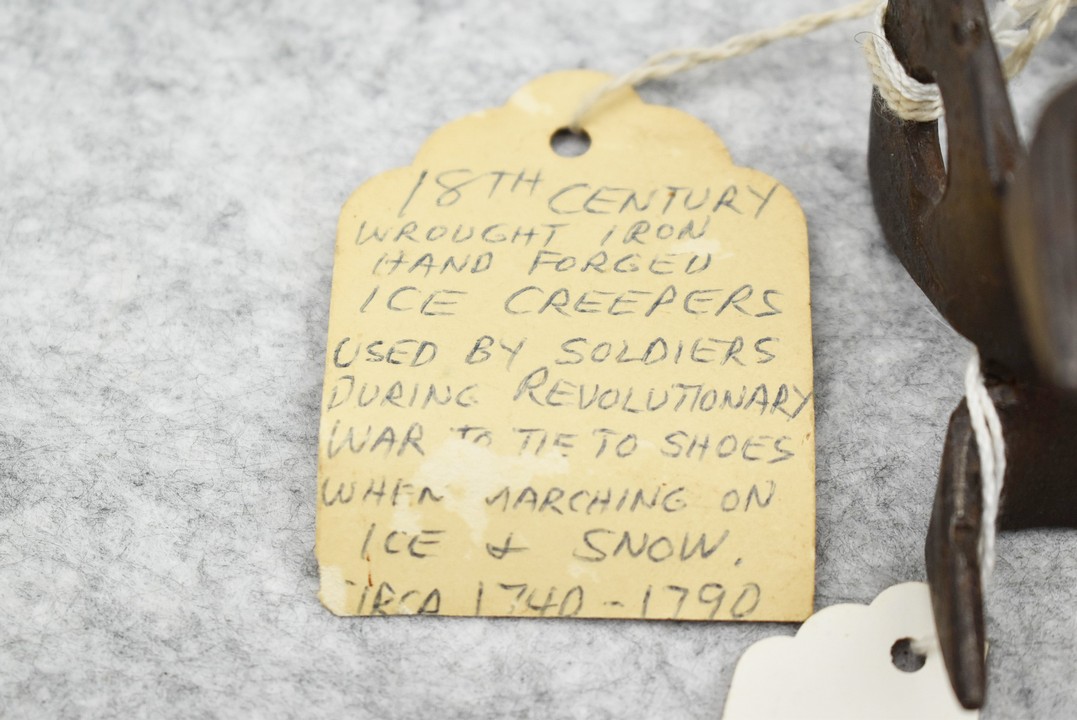 18TH CENTURY
WROUGHT IRON
HAND FORGED
ICE CREEPERS
USED BY SOLDIERS
DURING REVOLUTIONARY
WAR TO TIE TO SHOES
WHEN MARCHING ON
ICE & SNOW.
CIRCA 1740-1790